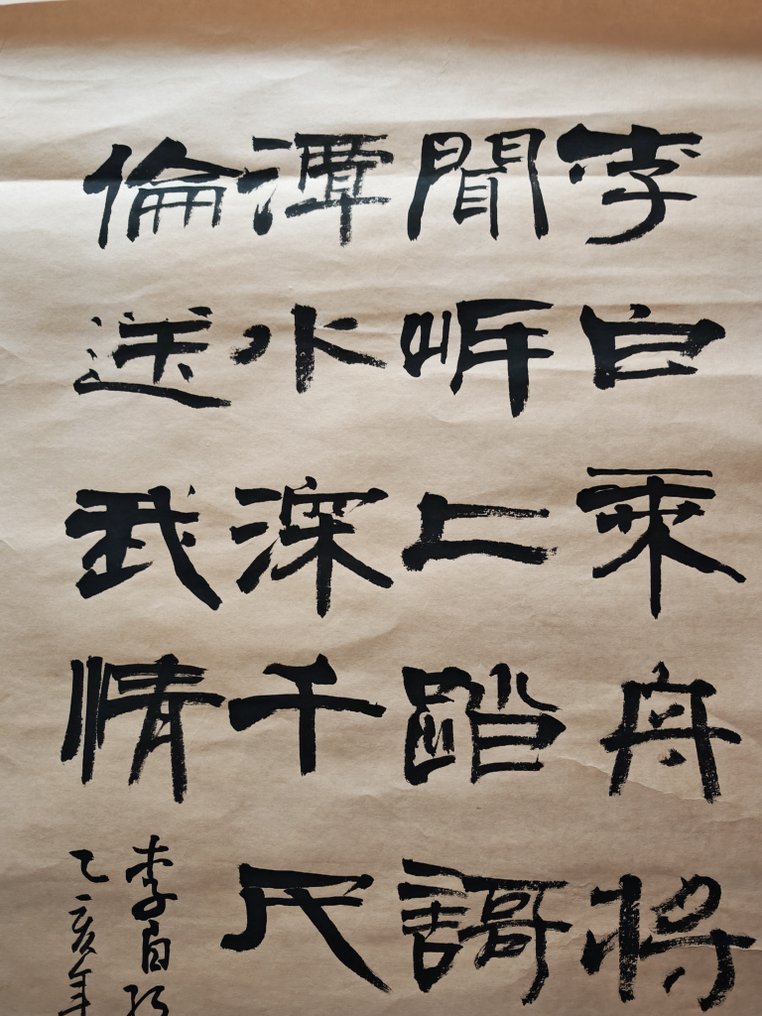 李白乘舟將
聞岸上踏謌
潭水深千尺
倫送我情
李白
乙亥年